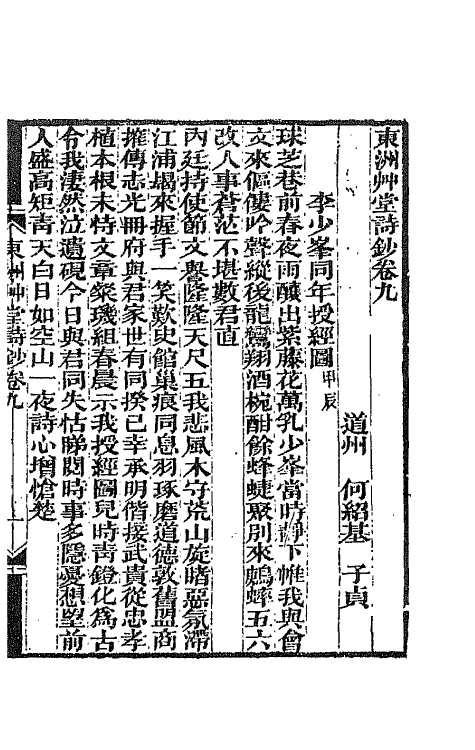 東洲艸堂詩鈔卷九
道州　何紹基　子貞
李少峯同年授經圖甲辰
球芝巷前春夜雨釀出紫藤花萬乳少峯當時靜下帷我與曾
文來傴僂吟聲縱後龍鸞翔酒椀酣餘蜂蜨聚別來鷓蟀五六
改人事蒼茫不堪數君直
內廷持使節文譽隆隆天尺五我悲風木守荒山旋睹惡氛滯
江浦朅來握手一笑歎史館巢痕同息羽琢磨道德敦舊盟商
搉傳志光冊府與君家世有同揆已幸承明偕接武貴從忠孝
植本根未恃文章粲璣組春晨示我授經圖兒時靑鐙化爲古
令我淒然泣遺硯今日與君同失怙睇閱時事多隱憂想望前
人盛高矩靑天白日如空山一夜詩心增愴楚
東洲艸堂詩鈔卷九
一